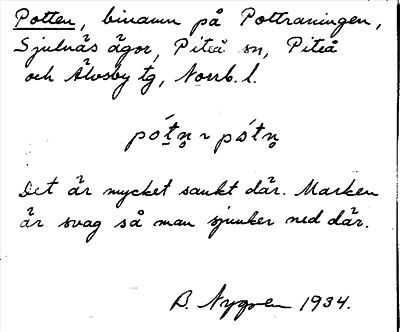 Potten, binamn på Pottraningen,
Sjulnäs ägor, Piteå sn, Piteå
och Älvsby tg, Norrb. l.
pót̠n̥ ~ pótn̥
Det är mycket sankt där. Marken
är svag så man sjunker ned där.
B. Nygren 1934.